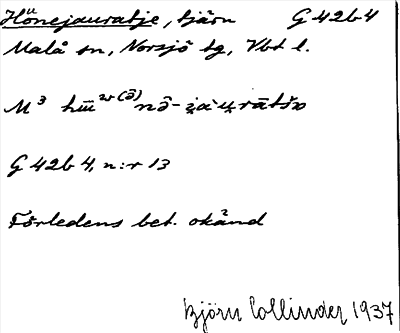 Hönejauratje, tjärn G 42b4
Malå sn, Norsjö tg, Vbt l.
M³
G 42b 4, n:r 13
Förledens bet. okänd
Björn Collinder 1937